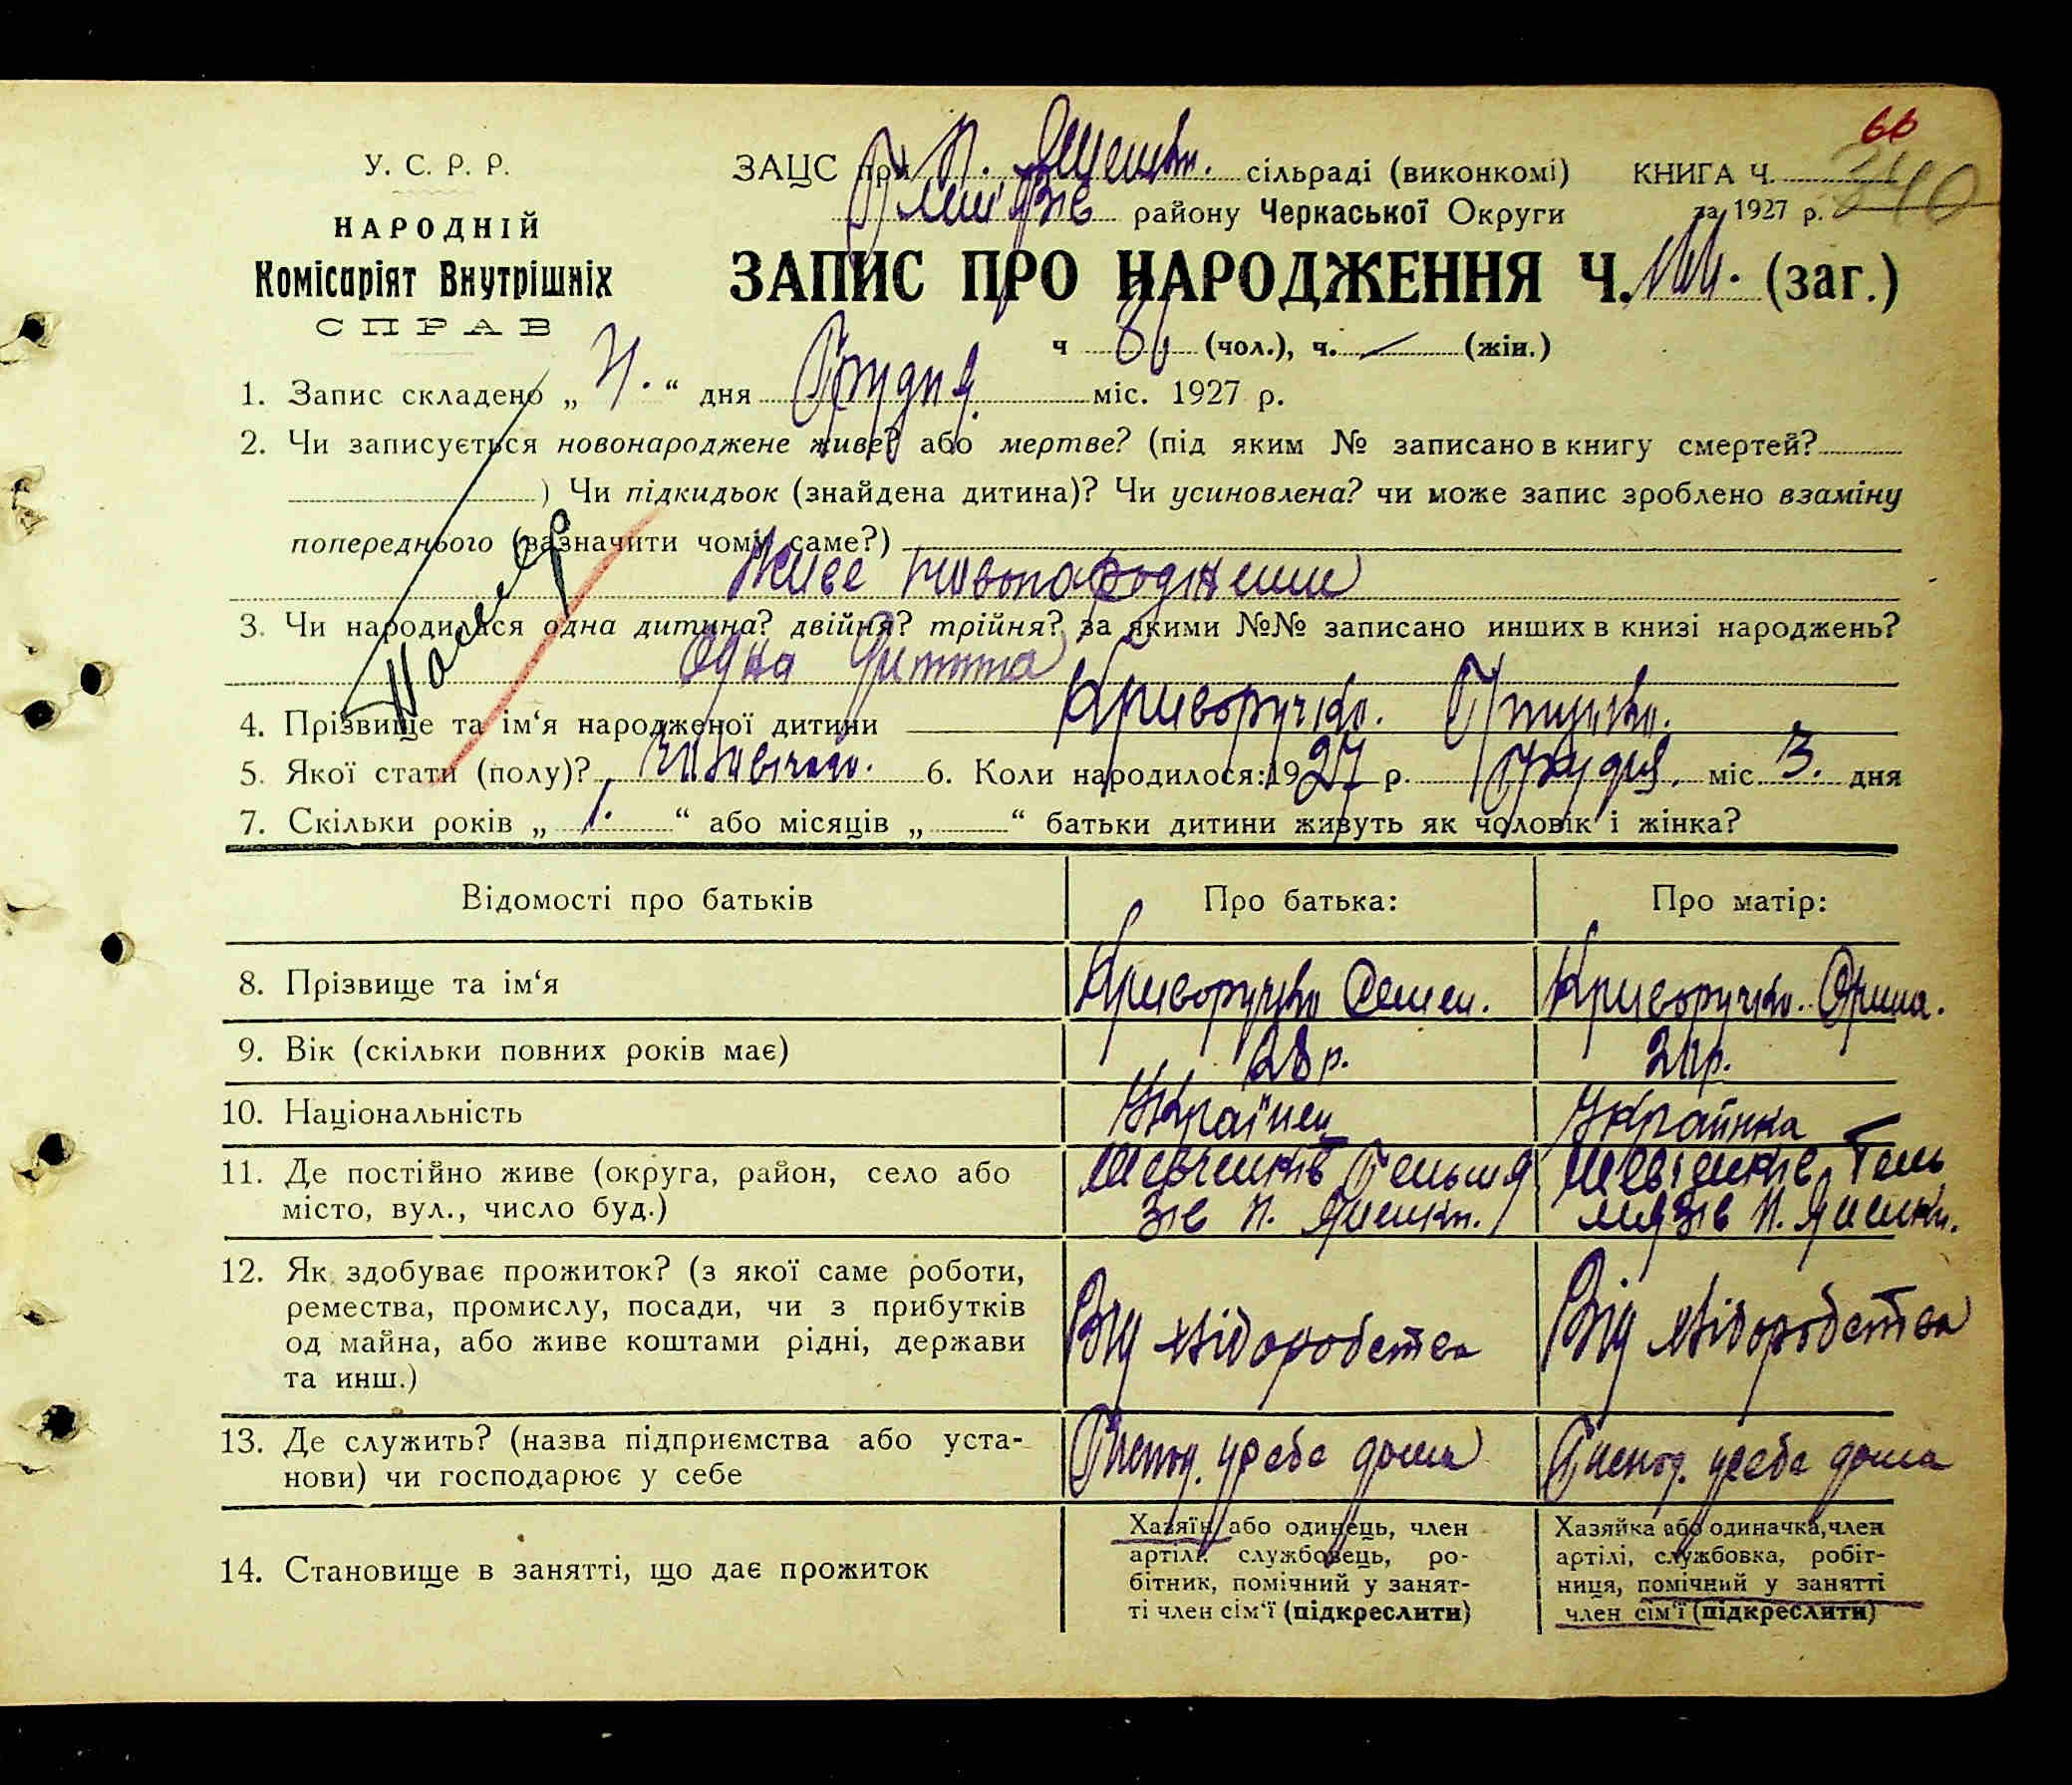 66
У. С. Р. Р.
ЗАЦС при сільраді (виконкомі) КНИГА Ч. 340
району Черкаської Округи за 1927 р.
НАРОДНІЙ
Комісаріят Внутрішніх
СПРАВ
ЗАПИС ПРО НАРОДЖЕННЯ Ч. (заг.)
ч 86 (чол.), ч. — (жін.)
1. Запис складено „ “ дня Грудня міс. 1927 р.
2. Чи записується новонароджене живе? або мертве? (під яким № записано в книгу смертей?
) Чи підкидьок (знайдена дитина)? Чи усиновлена? чи може запис зроблено взаміну
попереднього (зазначити чому саме?)
Живе новонароджене
3. Чи народилася одна дитина? двійня? трійня? за якими №№ записано инших в книзі народжень?
Одна дитина
4. Прізвище та ім‘я народженої дитини Криворучко.
5. Якої стати (полу)? 6. Коли народилося: 1927 р. Грудня. міс 3. дня
7. Скільки років „ 1. “ або місяців „ “ батьки дитини живуть як чоловік і жінка?
Відомості про батьків Про батька: Про матір:
8. Прізвище та ім‘я Криворучко Семен. Криворучко. Орина.
9. Вік (скільки повних років має) 28 р.
10. Національність Українец Українка
11. Де постійно живе (округа, район, село або Шевченків Гельмя Шевченків Гель
місто, вул., число буд.) зів П. Яшики. мязів П. Яшики.
12. Як здобуває прожиток? (з якої саме роботи,
ремества, промислу, посади, чи з прибутків
од майна, або живе коштами рідні, держави
та инш.)
Від хліборобства Від хліборобства
13. Де служить? (назва підприємства або уста-
нови) чи господарює у себе
Господ. у себе дома Господ. у себе дома
14. Становище в занятті, що дає прожиток
Хазяїн або одинець, член
артілі, службовець, ро-
бітник, помічний у занят-
ті член сім‘ї (підкреслити)
Хазяйка або одиначка, член
артілі, службовка, робіт-
ниця, помічний у занятті
член сім‘ї (підкреслити)